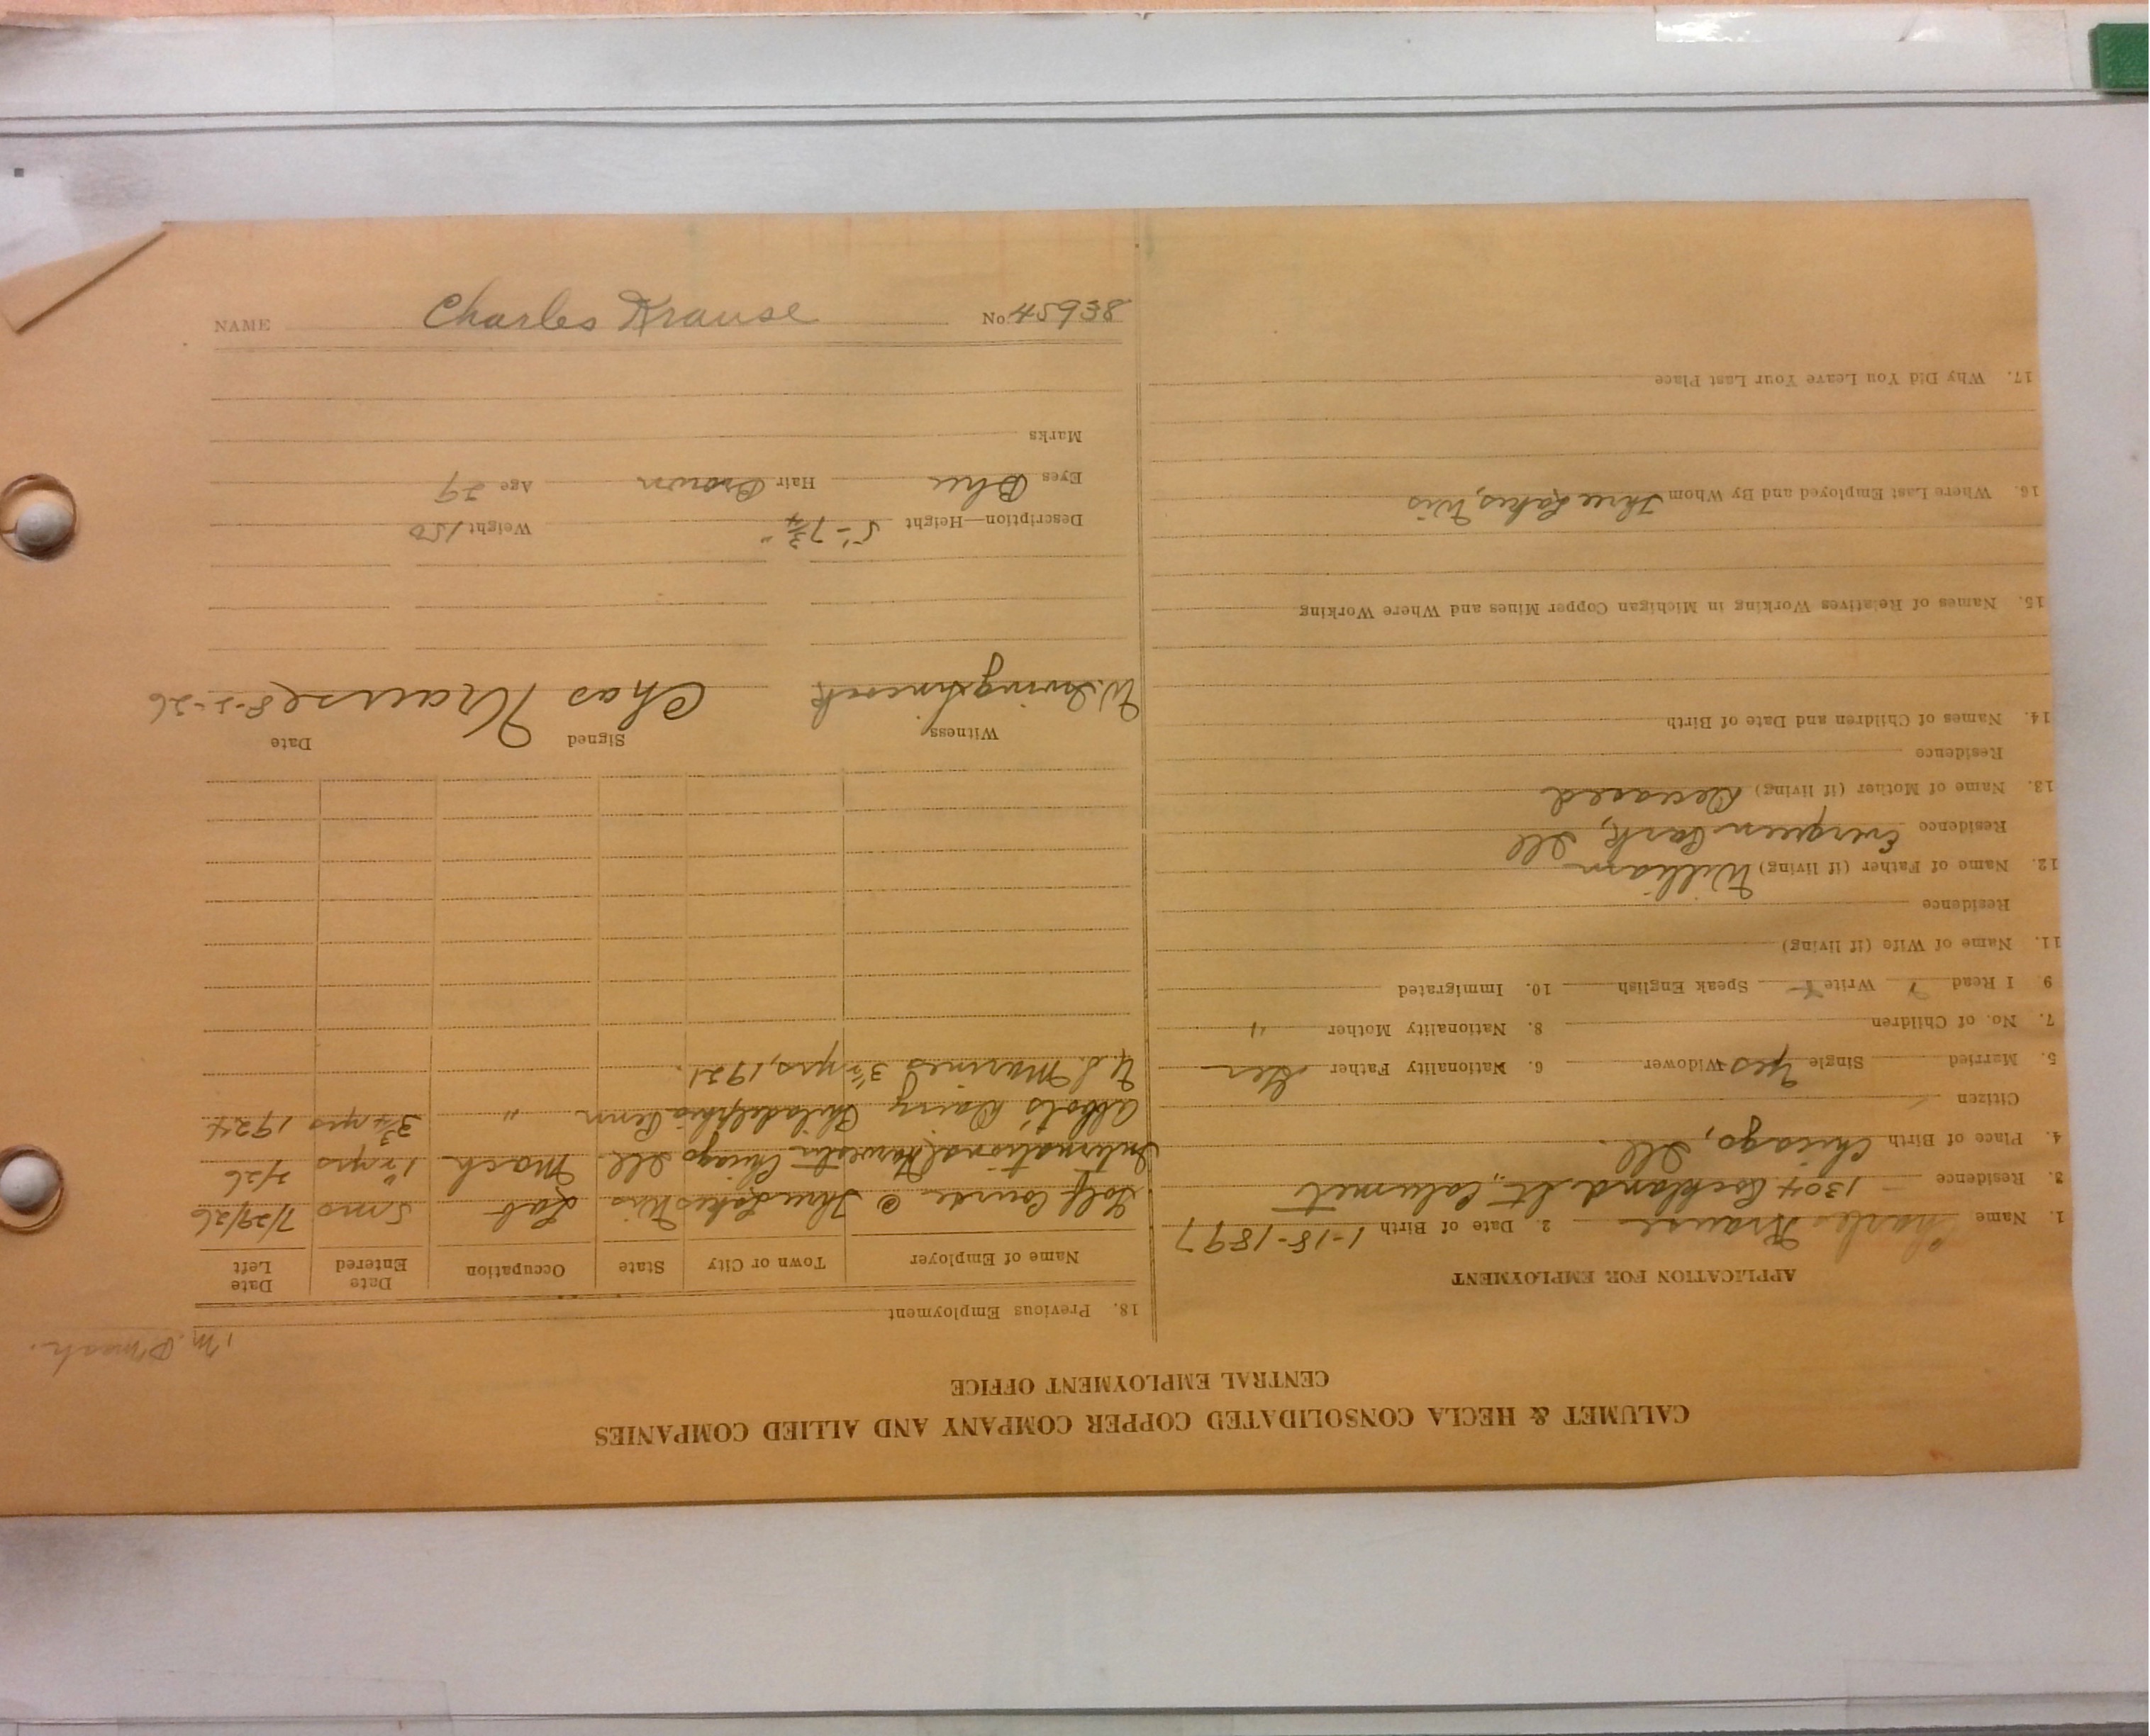 CALUMET & HECLA CONSOLIDATED COPPER COMPANY AND ALLIED COMPANIES
CENTRAL EMPLOYMENT OFFICE
APPLICATION FOR EMPLOYMENT
1. Name Charles Krause 2. Date of Birth 1-18-1897
3. Residence 1304 Rockland St., Calumet
4. Place of Birth Chicago, Ill.
Citizen
5. Married Single Yes Widower 6. Nationality Father Ger
7. No. of Children 8. Nationality Mother "
9. I Read Write Speak English 10. Immigrated
11. Name of Wife (if living)
Residence
12. Name of Father (if living) William
Residence Evergreen Park, Ill
13. Name of Mother (if living) Deceased
Residence
14. Names of Children and Date of Birth
15. Names of Relatives Working in Michigan Copper Mines and Where Working
16. Where Last Employed and By Whom Three Lakes, Wis
17. Why Did You Leave Your Last Place
18. Previous Employment
Name of Employer Town or City State Occupation Date Entered Date Left
Golf Course @ Three Lakes Wis Lab 5 mo 7/29/26
International Harvester Chicago Ill Mach 1 1/2 yrs 2/26
Abbots Dairy Philadelphia Penn " 3 3/4 yrs 1924
U.S. Marines 3 1/2 yrs, 1921.
Witness Signed Date
W. Irving Chas Krause 8-2-26
Description—Height 5'-7 3/4" Weight 150
Eyes Blue Hair Brown Age 29
Marks
NAME Charles Krause No. 45938